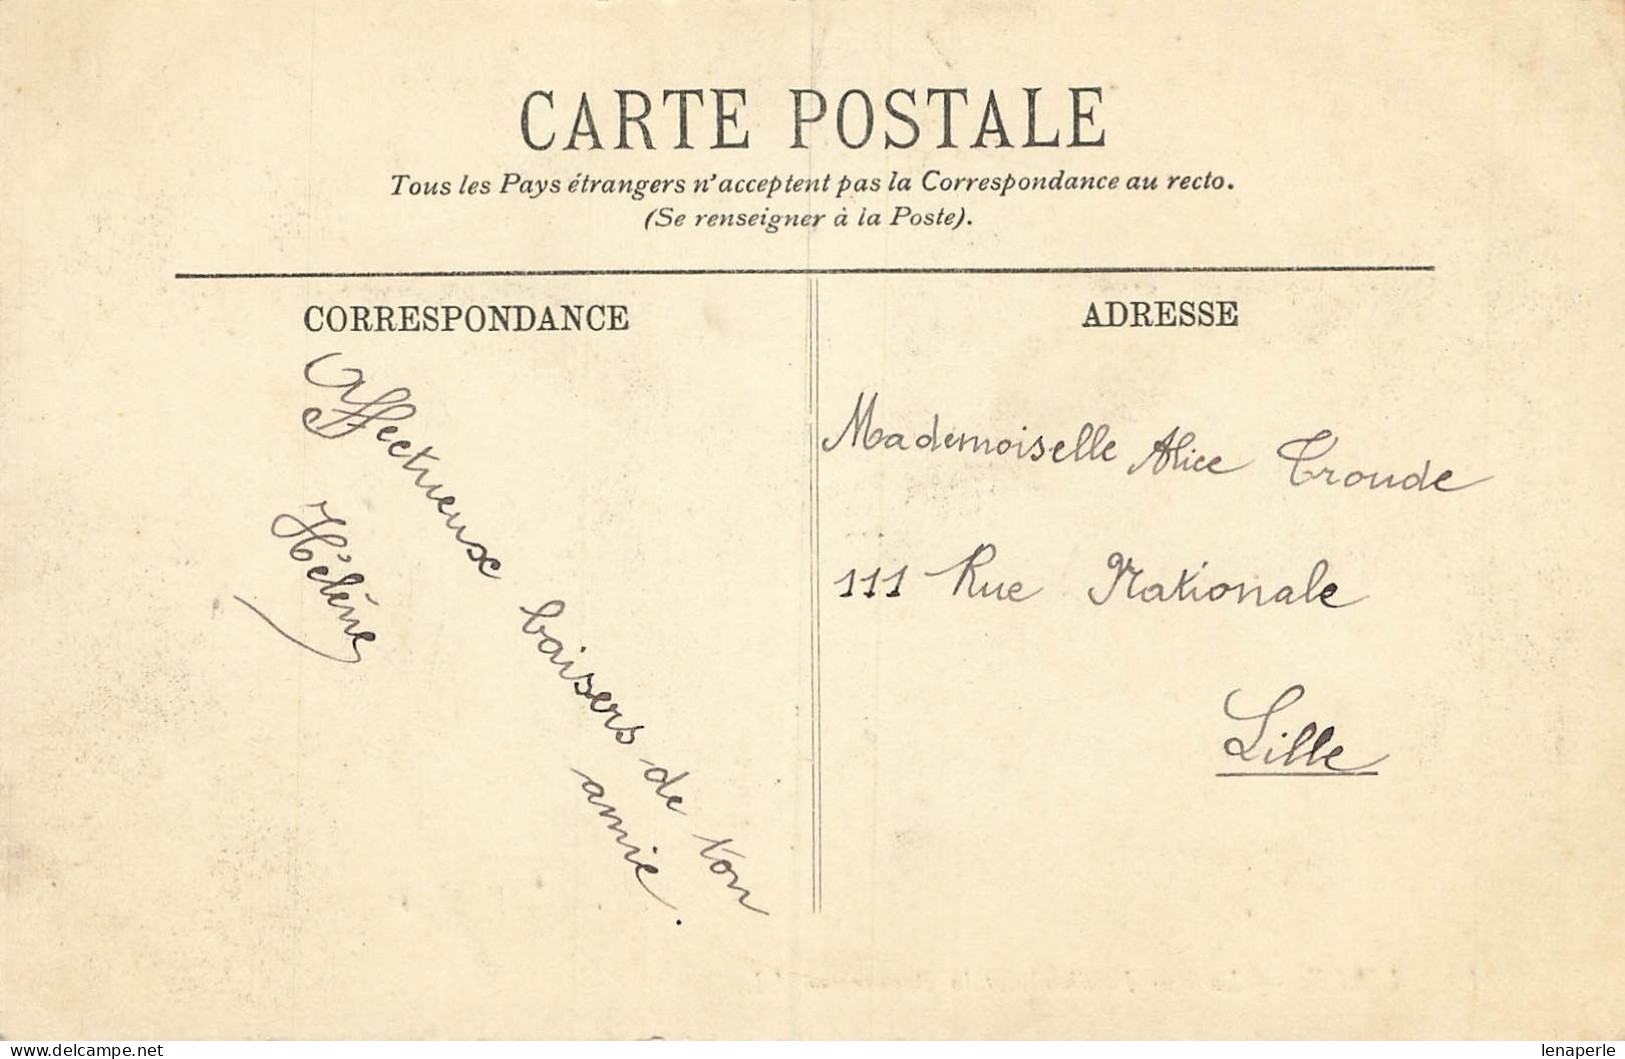 CARTE POSTALE
Tous les Pays étrangers n'acceptent pas la Correspondance au recto.
(Se renseigner à la Poste).
CORRESPONDANCE
Affectueux baisers de ton
amie.
Hélène
ADRESSE
Mademoiselle Alice Troude
111 Rue Nationale
Lille
delcampe.net
lenaperle